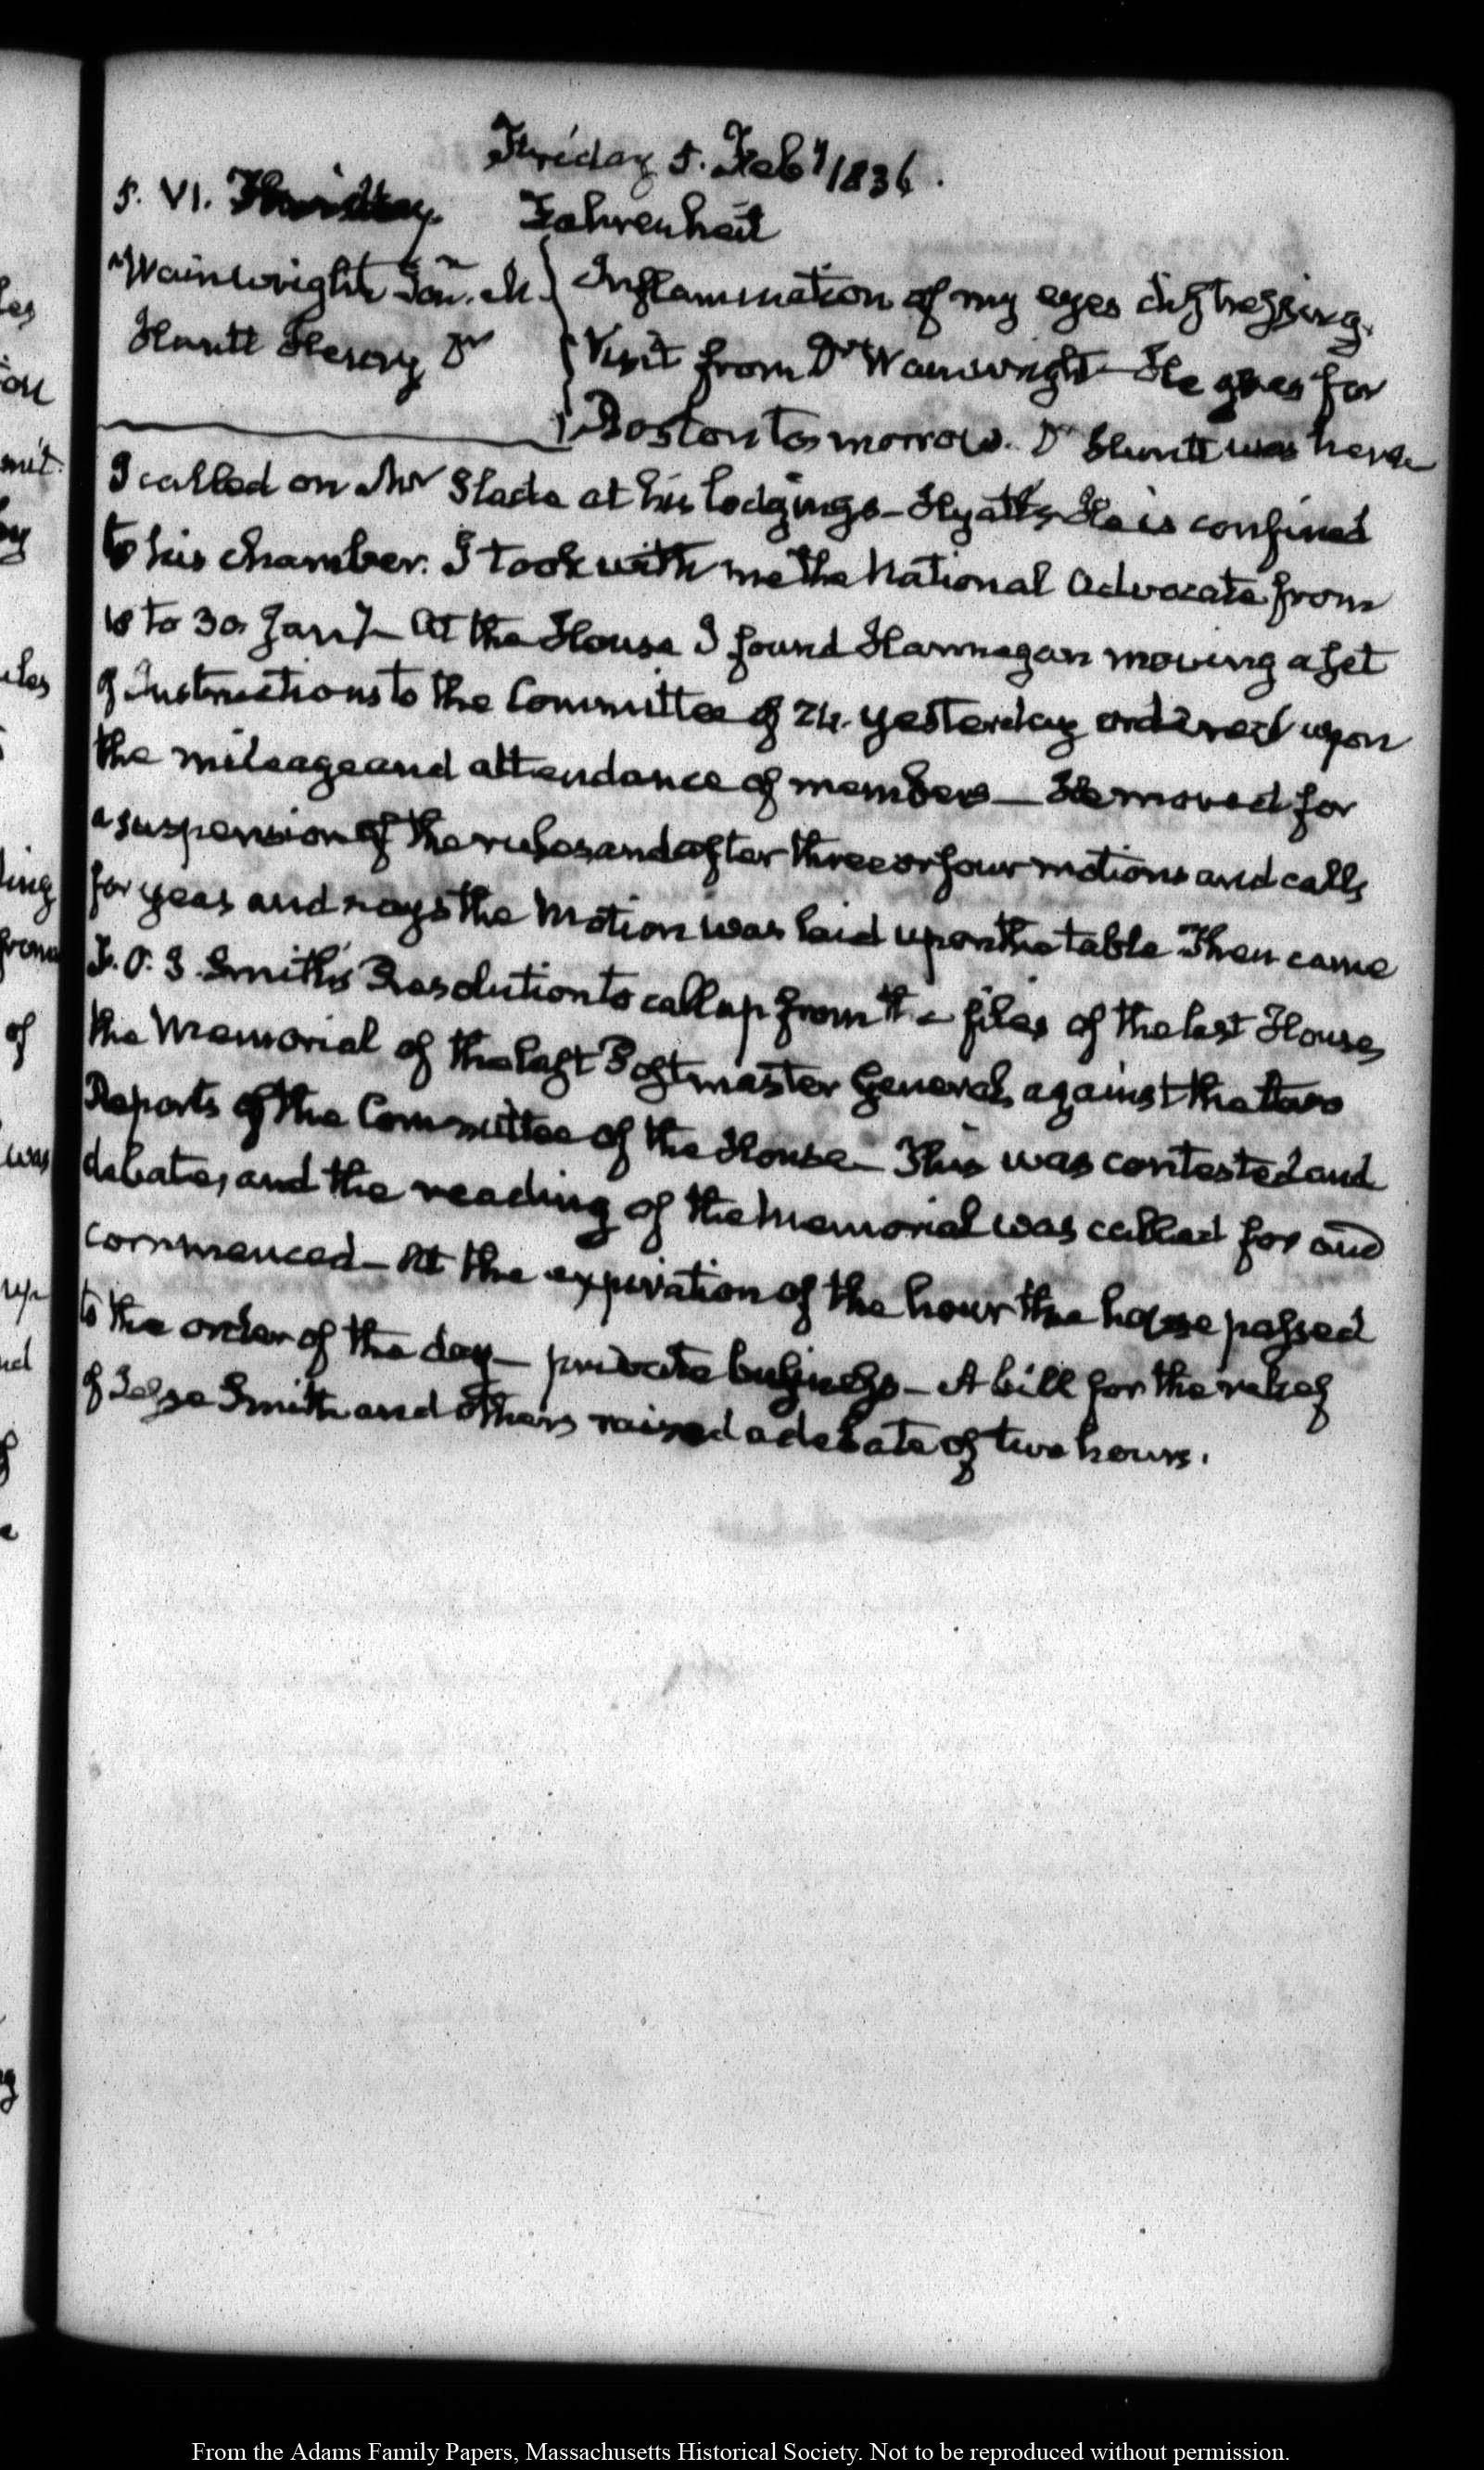 Friday 5. Feby 1836.
5. VI. Friday Fahrenheit
Wainwright Jon. M. Inflammation of my eyes distressing.
Huntt Henry Dr Visit from Dr Wainwright. He goes for
Boston to morrow. Dr Huntt was here
I called on Mr Slade at his lodgings - Hyatt's He is confined
to his chamber. I took with me the National Advocate from
to 30 Jany - At the House I found Hannegan moving a set
of Instructions to the Committee of 24. yesterday ordered upon
the mileage and attendance of members — He moved for
a suspension of the rules and after three or four motions and calls
for yeas and nays the Motion was laid upon the table Then came
F. O. J. Smith's Resolution to call up from the files of the last House,
the Memorial of the last Postmaster General, against the two
Reports of the Committee of the House - This was contested and
debate, and the reading of the Memorial was called for and
commenced - At the expiration of the hour the house passed
to the order of the day - private business - A bill for the relief
of Smith and others raised a debate of two hours.
les
ou
mit.
by
iles
ling
from
of
was
up
nd
From the Adams Family Papers, Massachusetts Historical Society. Not to be reproduced without permission.